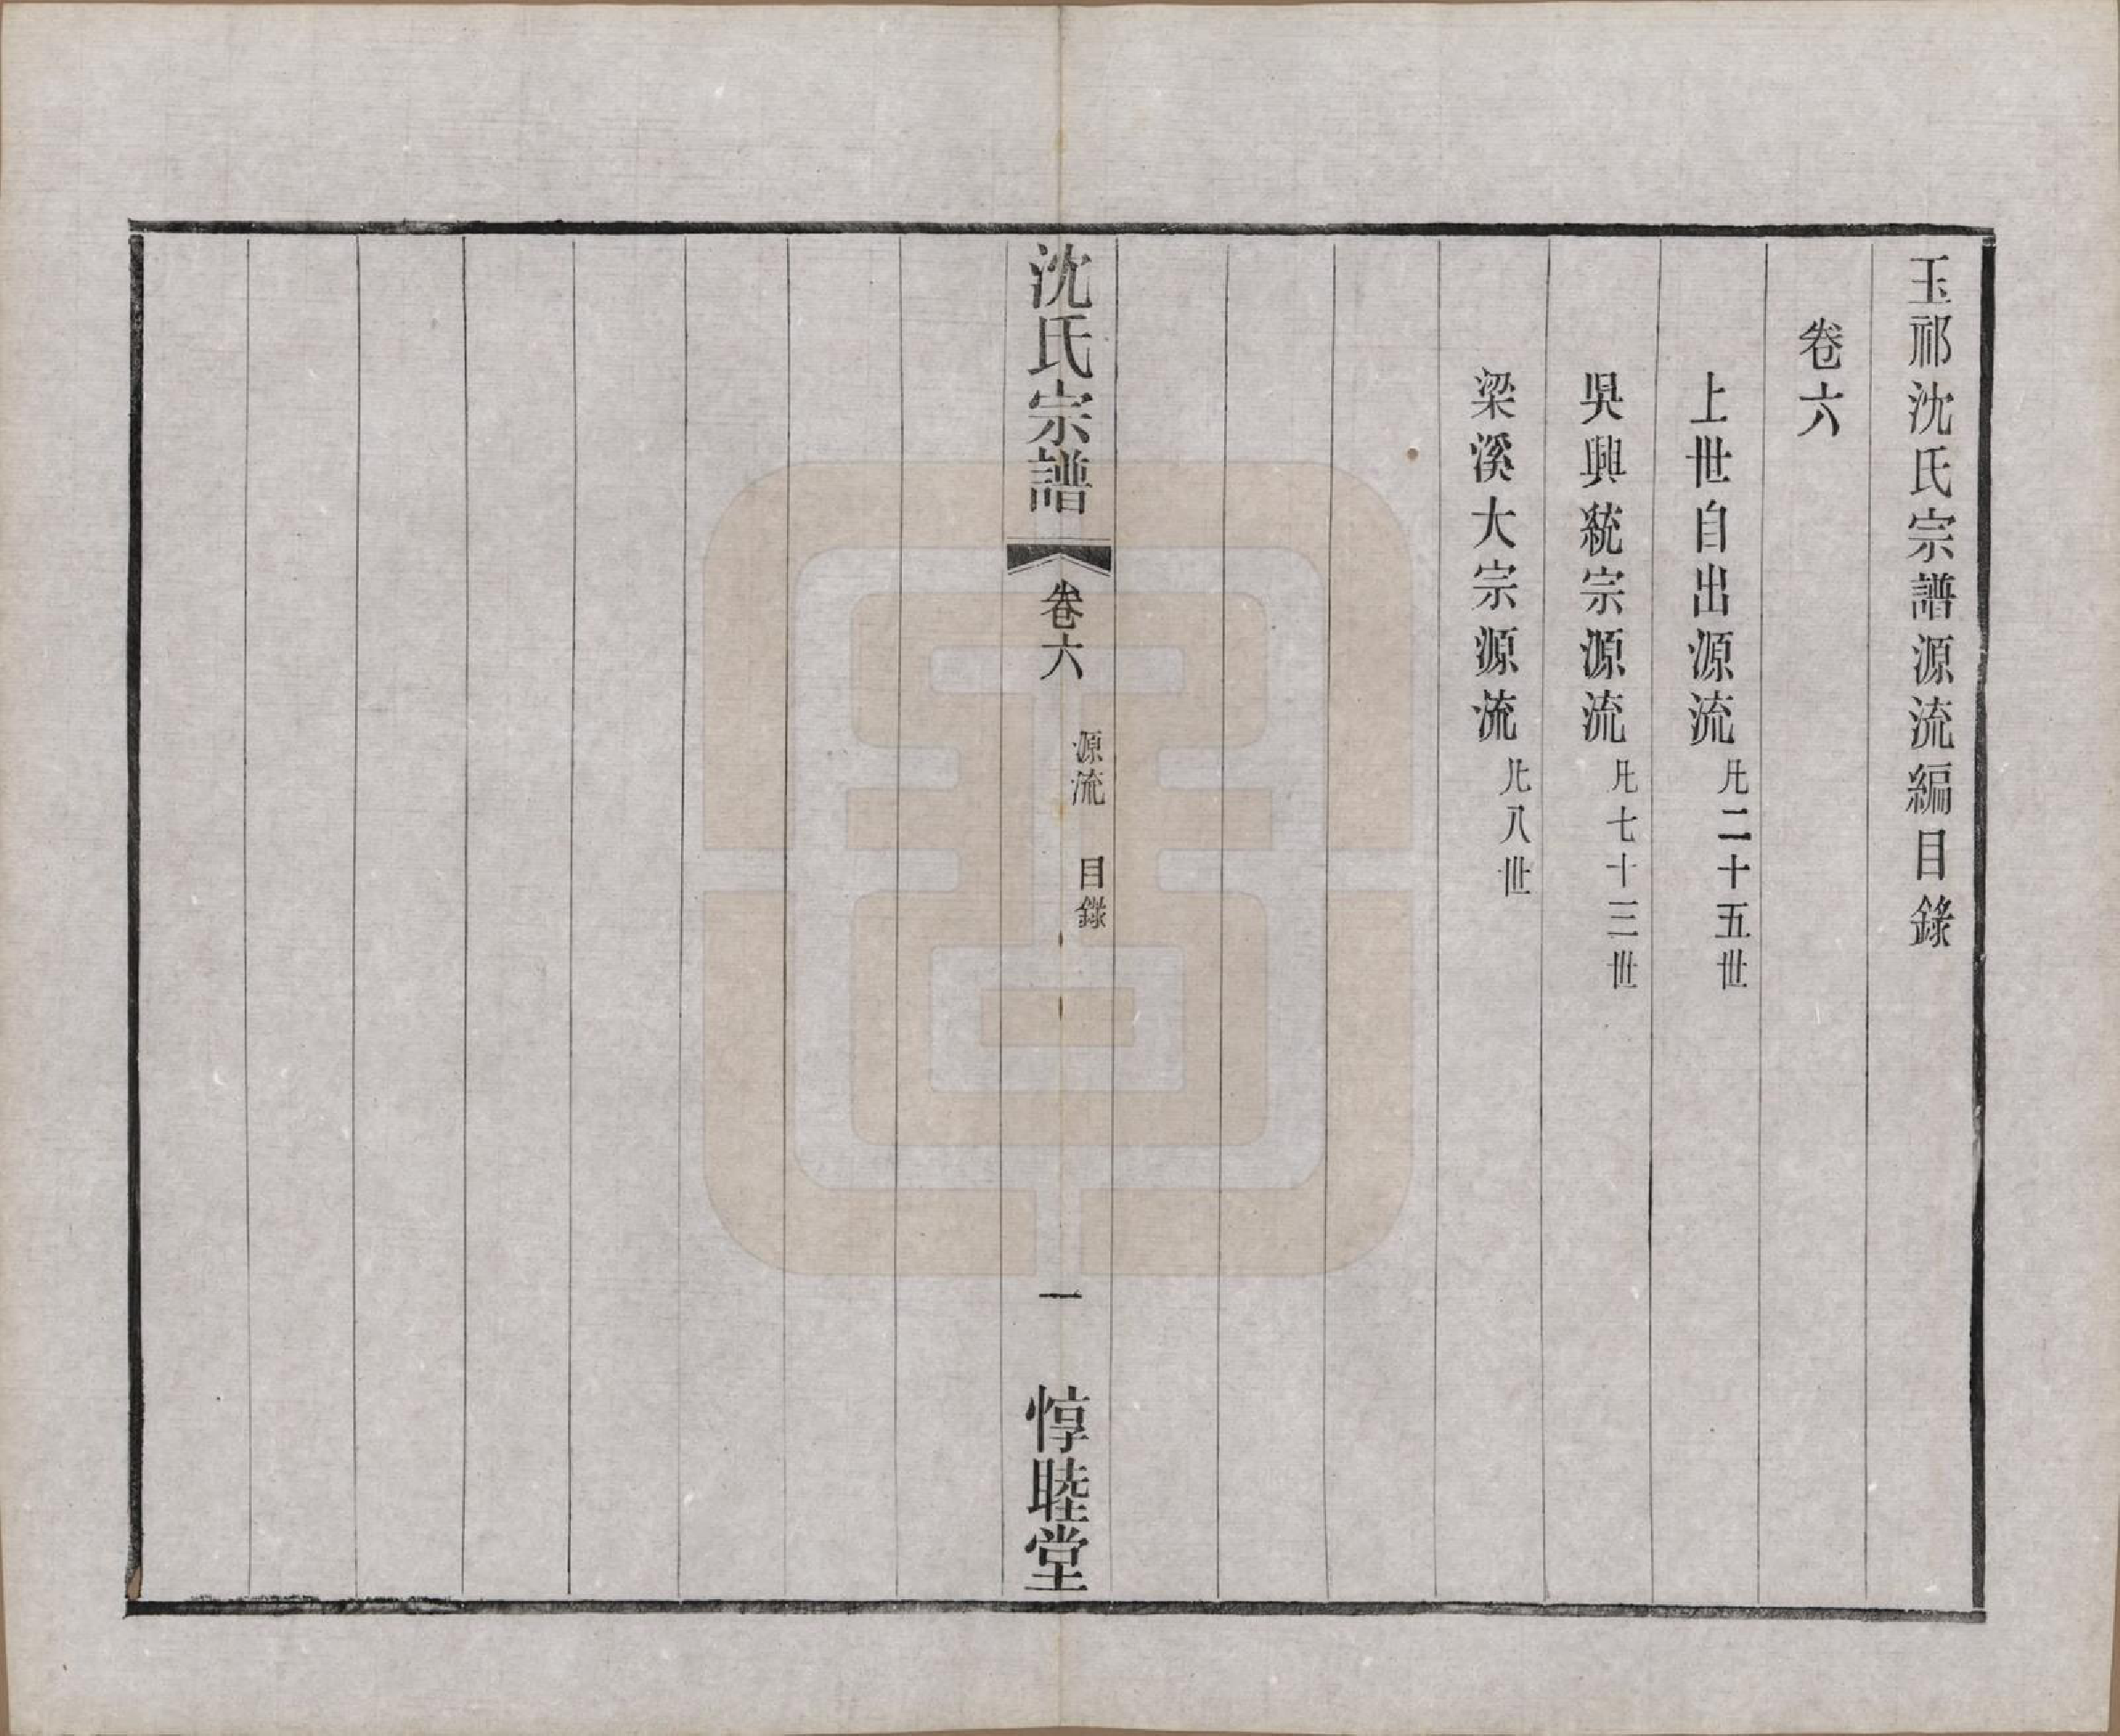 玉祁沈氏宗譜源流編目錄
卷六
上世自出源流凡二十五世
吳興統宗源流凡七十三世
梁溪大宗源流凡八世
沈氏宗譜
卷六
源流 目錄
一
惇睦堂